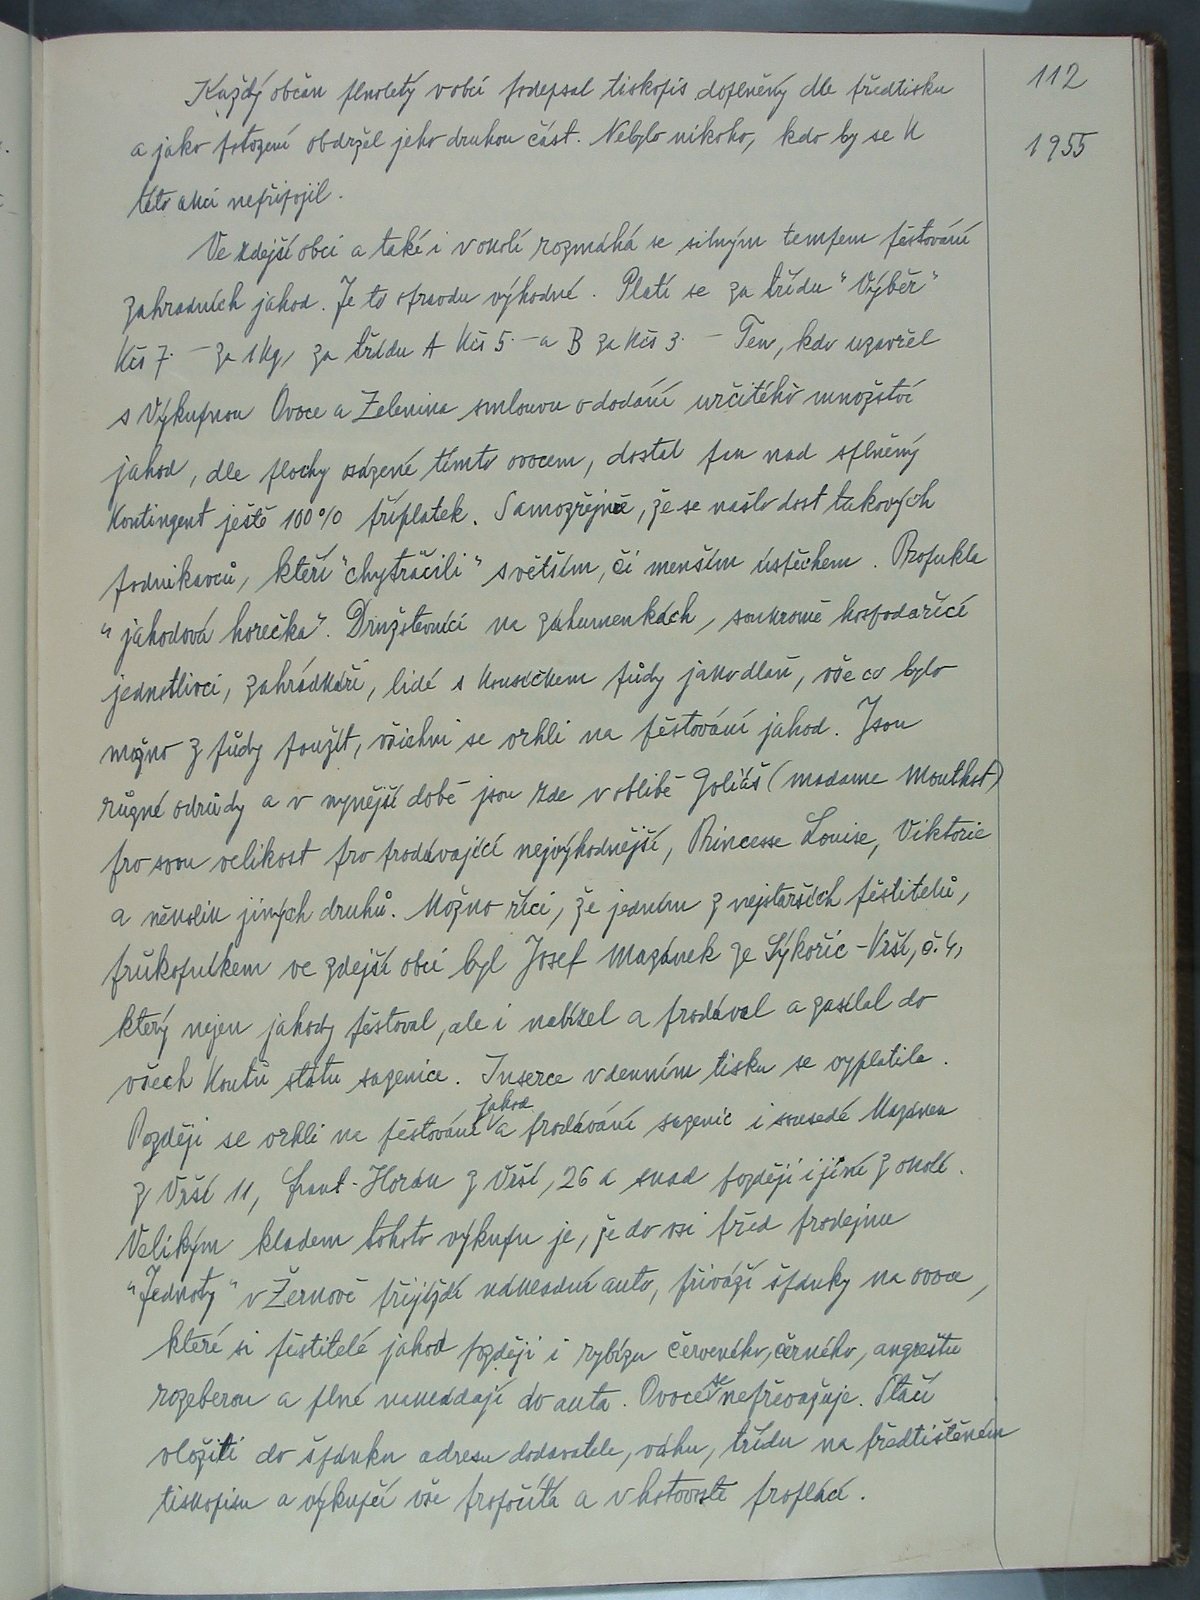 112
1955
Každý občan plnoletý v obci podepsal tiskopis doplněný dle předtisku
a jako potvzení obdržel jeho druhou část. Nebylo nikoho, kdo by se k
této akci nepřipojil.
Ve zdejší obci a také i v okolí rozmáhá se silným tempem pěstování
zahradních jahod. Je to opravdu výhodné. Platí se za třídu "Výběr"
Kčs 7.- za 1 kg, za třídu A Kčs 5.- a B za Kčs 3.- Ten, kdo uzavřel
s Výkupnou Ovoce a Zelenina smlouvu o dodání určitého množství
jahod, dle plochy osázené tímto ovocem, dostal pak nad splněný
kontingent ještě 100% příplatek. Samozřejmě, že se našlo dost takových
podnikavců, kteří "chytračili" s větším, či menším úspěchem. Propukla
"jahodová horečka". Družstevníci na záhumenkách, soukromě hospodařící
jednotlivci, zahrádkáři, lidé s kouskem půdy jako dlaň, vše co bylo
možno z půdy použít, všichni se vrhli na pěstování jahod. Jsou
různé odrůdy a v nynější době jsou zde v oblibě Goliáš (madame Mouthot)
pro svou velikost pro prodávající nejvýhodnější, Princesse Louise, Viktorie
a několik jiných druhů. Možno říci, že jedním z nejstarších pěstitelů,
průkopníkem ve zdejší obci byl Josef Mazánek ze Sýkořic-Vrší, č. 4,
který nejen jahody pěstoval, ale i nabízel a prodával a zasílal do
všech koutů státu sazenice. Inserce v denním tisku se vyplatila.
Později se vrhli na pěstování jahod a prodávání sazenic i sousedé Mazánek
z Vrší 11, Frant. Horák z Vrší, 26 a snad později i jiní z okolí.
Velikým kladem tohoto výkupu je, že do vsi před prodejnu
"Jednoty" v Žernově přijíždí nákladní auto, přiváží špánky na ovoce,
které si pěstitelé jahod později i rybízu červeného, černého, angreštu
rozeberou a plné nakládají do auta. Ovoce se nepřevažuje. Stačí
vložiti do špánku adresu dodavatele, váhu, třídu na předtištěném
tiskopisu a výkupčí vše propočítá a v hotovosti proplácí.